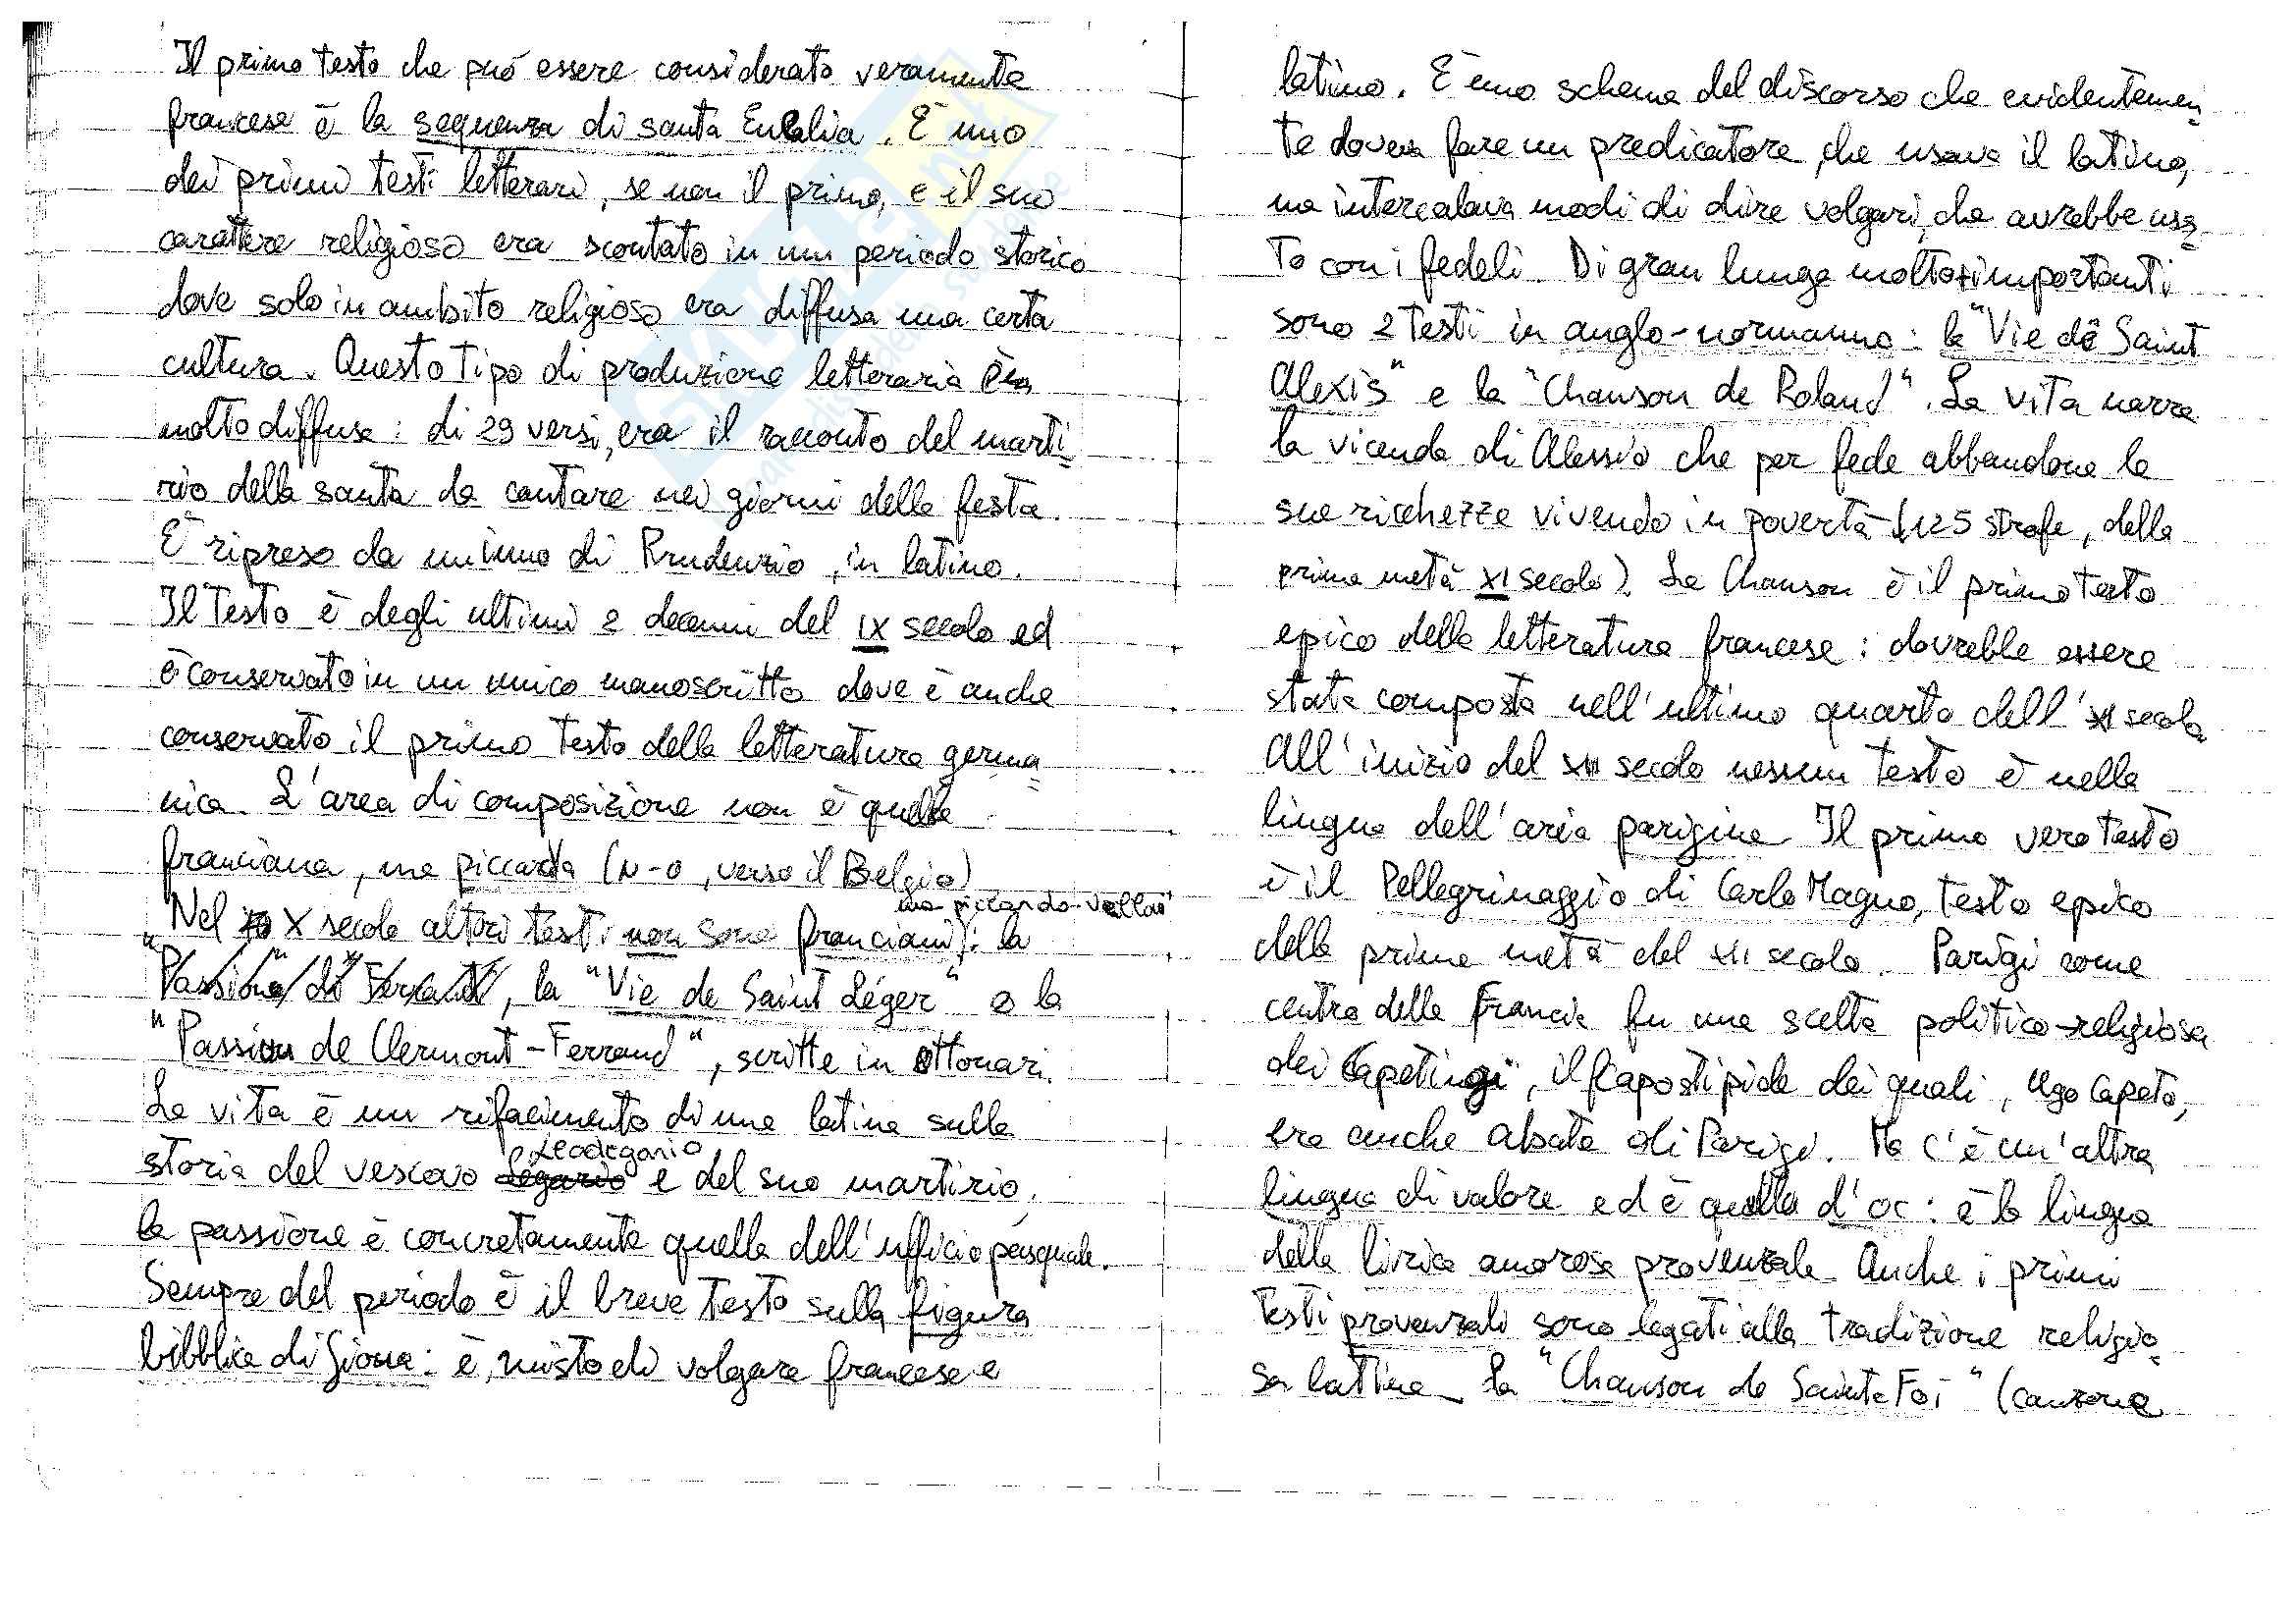 Il primo testo che può essere considerato veramente
francese è la sequenza di santa Eulalia. È uno
dei primi testi letterari, se non il primo, e il suo
carattere religioso era scontato in un periodo storico
dove solo in ambito religioso era diffusa una certa
cultura. Questo tipo di produzione letteraria era
molto diffusa: di 29 versi, era il racconto del marti=
rio della santa da cantare nei giorni della festa.
È ripreso da un inno di Prudenzio, in latino.
Il testo è degli ultimi 2 decenni del IX secolo ed
è conservato in un unico manoscritto dove è anche
conservato il primo testo della letteratura germa=
nica. L'area di composizione non è quella
franciana, ma piccarda (N-O, verso il Belgio)
ma piccardo-valloni
Nel X secolo altri testi non sono franciani): la
"Passione" di Ferrand, la "Vie de Saint Léger" e la
"Passion de Clermont-Ferrand", scritte in ottonari.
La vita è un rifacimento di una latina sulla
Leodegario
storia del vescovo Legario e del suo martirio,
la passione è concretamente quella dell'ufficio pasquale.
Sempre del periodo è il breve testo sulla figura
biblica di Giona: è misto di volgare francese e
latino. È uno schema del discorso che evidentemen=
te doveva fare un predicatore, che usava il latino,
ma intercalava modi di dire volgari, che avrebbe usa=
to con i fedeli. Di gran lunga molto + importanti
sono 2 testi in anglo-normanno: la "Vie de Saint
Alexis" e la "Chanson de Roland". La vita narra
la vicenda di Alessio che per fede abbandona le
sue ricchezze vivendo in povertà (125 strofe, della
prima metà XI secolo). La Chanson è il primo testo
epico della letteratura francese: dovrebbe essere
stata composta nell'ultimo quarto dell'XI secolo.
All'inizio del XII secolo nessun testo è nella
lingua dell'aria parigina. Il primo vero testo
è il Pellegrinaggio di Carlo Magno, testo epico
della prima metà del XII secolo. Parigi come
centro della Francia fu una scelta politico-religiosa
dei Capetingi, il capostipide dei quali, Ugo Capeto,
era anche abate di Parigi. Ma c'è un'altra
lingua di valore ed è quella d'oc: è la lingua
della lirica amorosa provenzale. Anche i primi
testi provenzali sono legati alla tradizione religio=
sa latina. La "Chanson de Sainte Foi" (canzone